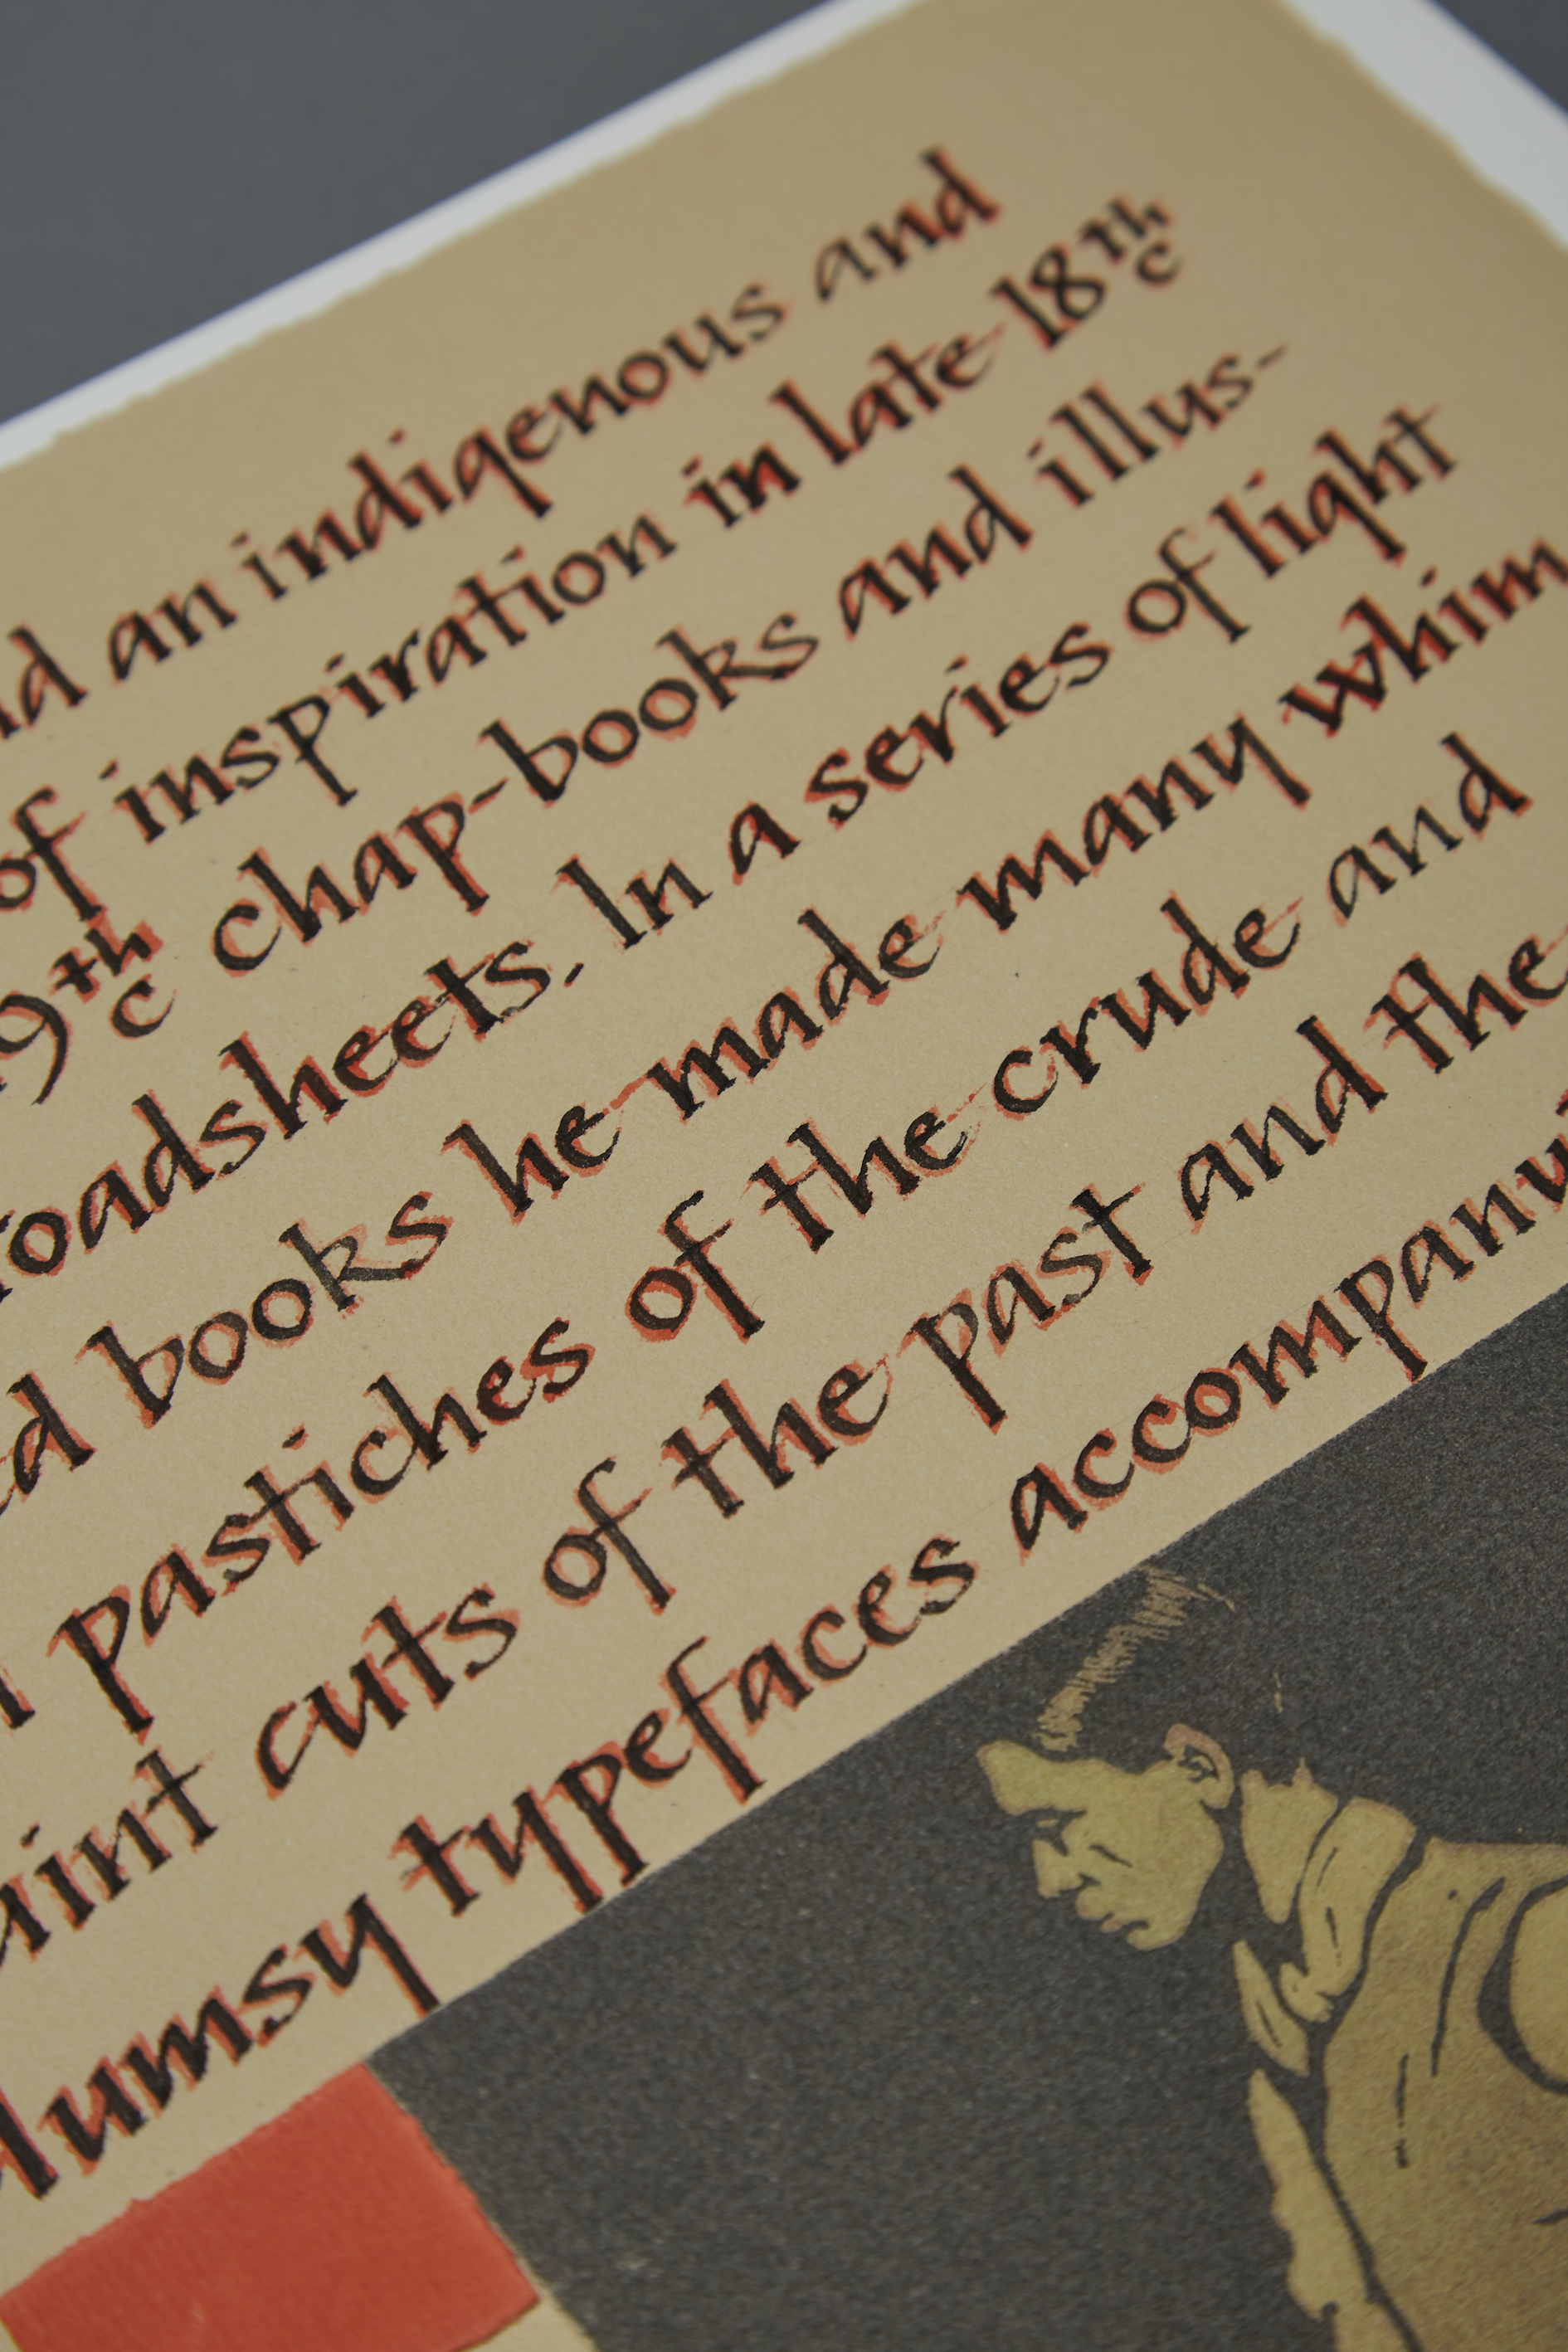 an indigenous and
of inspiration in late 18th c
19th c chap-books and illus-
In a series of light
books he made many whim
pastiches of the crude and
cuts of the past and the
typefaces